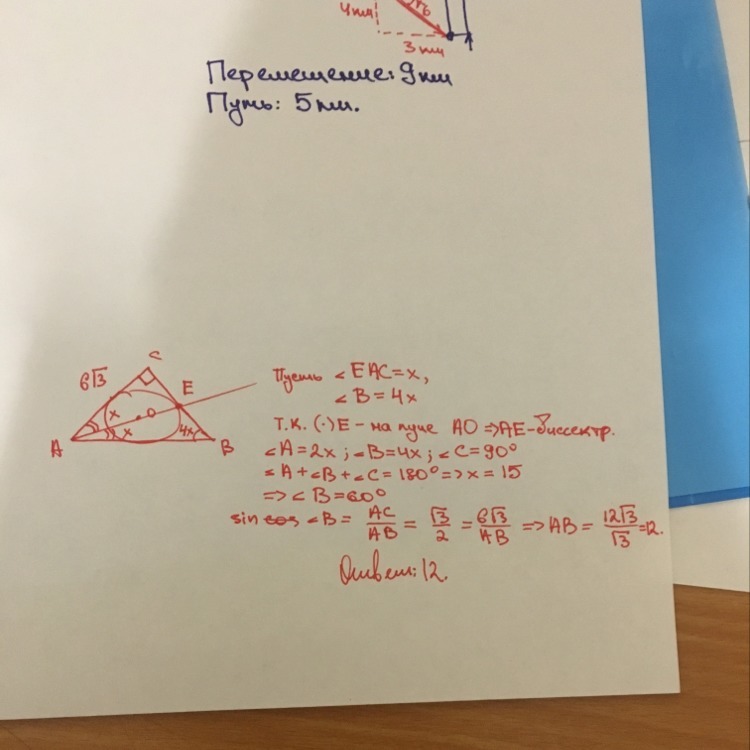 4км
3 км
Перемещение: 9км
Путь: 5 км.
C
6√3
E
x
O
x
4x
A
B
Пусть ∠EAC=x,
∠B=4x
Т.К. (·)E - на луче AO ⇒ AE-биссектр.
∠A=2x; ∠B=4x; ∠C=90°
∠A+∠B+∠C=180° ⇒ x=15
⇒ ∠B=60°
sin cos ∠B = AC/AB = √3/2 = 6√3/AB ⇒ AB = 12√3/√3 =12.
Ответ: 12.